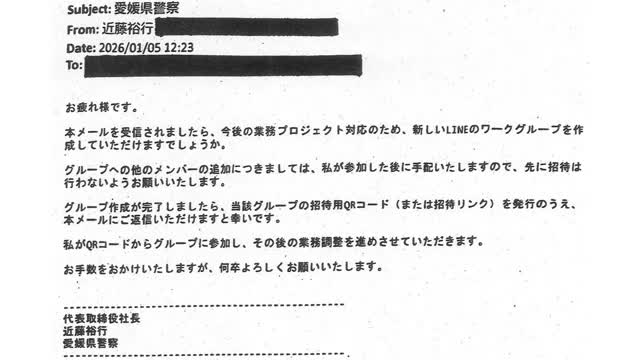 Subject: 愛媛県警察
From: 近藤裕行
Date: 2026/01/05 12:23
To:
お疲れ様です。
本メールを受信されましたら、今後の業務プロジェクト対応のため、新しいLINEのワークグループを作
成していただけますでしょうか。
グループへの他のメンバーの追加につきましては、私が参加した後に手配いたしますので、先に招待は
行わないようお願いいたします。
グループ作成が完了しましたら、当該グループの招待用QRコード（または招待リンク）を発行のうえ、
本メールにご返信いただけますと幸いです。
私がQRコードからグループに参加し、その後の業務調整を進めさせていただきます。
お手数をおかけいたしますが、何卒よろしくお願いいたします。
代表取締役社長
近藤裕行
愛媛県警察